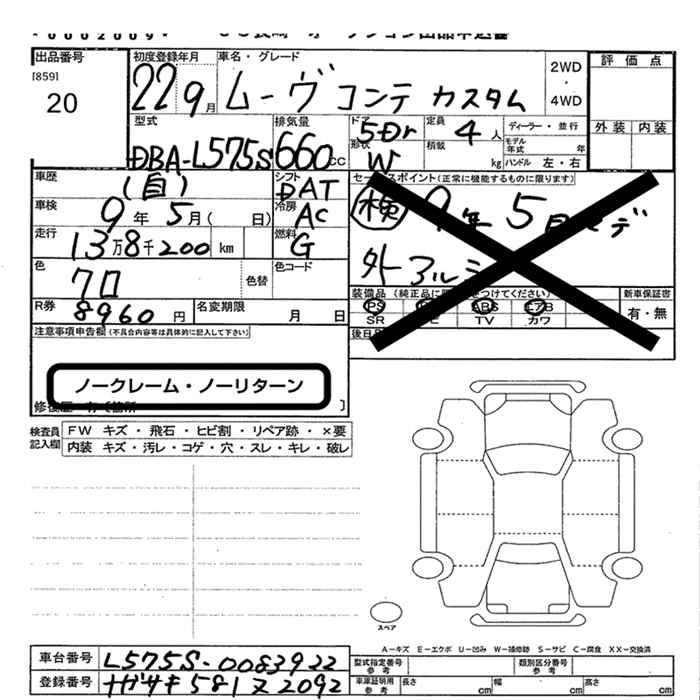 *0000200９*
出品番号
[859]
20
初度登録年月
22 9月
車名・グレード
ムーヴ コンテ カスタム
2WD
・
4WD
評価点
外装 内装
型式
DBA-L575S
排気量
660cc
ドア
5Dr
形状
W
定員
4人
積載
kg
ディーラー・並行
モデル年式 年
ハンドル 左・右
車歴
(自)
シフト
DAT
車検
9年5月( 日)
冷房
AC
走行
13万8千200km
燃料
G
色
クロ
色替
色コード
R券
8960円
名変期限
月 日
セールスポイント(正常に機能するものに限ります)
検 9年5月
外アルミ
装備品
PS
ABS
エアB
SR
TV
カワ
新車保証書
有・無
後日
注意事項申告欄(不具合内容等は具体的に記入して下さい)
ノークレーム・ノーリターン
検査員記入欄
FW キズ・飛石・ヒビ割・リペア跡・×要
内装 キズ・汚レ・コゲ・穴・スレ・キレ・破レ
スペア
A－キズ E－エクボ U－凹み W－補修跡 S－サビ C－腐食 XX－交換済
車台番号
L575S-0083922
登録番号
ナガサキ581ヌ2092
型式指定番号
参考
類別区分番号
参考
車庫証明用
参考
長さ cm
幅 cm
高さ cm